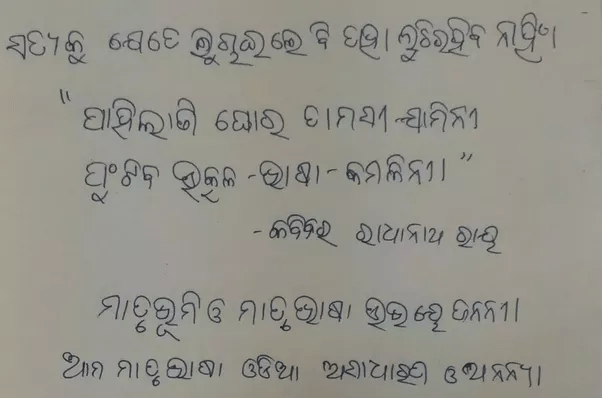 ସତ୍ୟକୁ ଯେତେ ଲୁଚାଇଲେ ବି ତାହା ଲୁଚିରହିବ ନାହିଁ।
"ପାହିଲାଣି ଘୋର ତାମସୀ-ଯାମିନୀ
ଫୁଟିବ ଉତ୍କଳ-ଭାଷା-କମଳିନୀ।"
-କବିବର ରାଧାନାଥ ରାୟ
ମାତୃଭୂମି ଓ ମାତୃଭାଷା ଉଭୟେ ଜନନୀ।
ଆମ ମାତୃଭାଷା ଓଡିଆ ଅସାଧାରଣ ଓ ଅନନ୍ୟ।